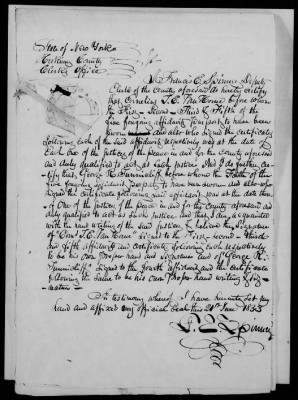 State of New York
Herkimer County
Clerk's Office
I Francis E. Spinner Deputy
Clerk of the County aforesaid do hereby certify
that Cornelius T. E. Van Horne before whom
the First - Second - Third & Fifth of the
five foregoing affidavits purport to have been
sworn and also who signed the certificates
following each of the said affidavits respectively was at the date of
each one of the justices of the peace in and for the County aforesaid
and duly qualified to act as such justice And I do further cer-
tify that George R. before whom the Fourth of the
five foregoing affidavits purports to have been sworn and also who
signed the certificate following said affidavit was at the date there-
of One of the justices of the peace in and for the County aforesaid and
duly qualified to act as such justice and that I am acquainted
with the hand writing of the said justices & believe the signatures
of "Corn. T. E. Van Horne" signed to the First - second - third
and fifth affidavits and certificates following each respectively
to be his own proper hand and signature and of "George R.
" signed to the fourth affidavit and the certificate
following the same to be his own proper hand writing & sig-
nature
In testimony whereof I have hereunto set my
hand and affixed my official Seal this 21st June 1833
Spinner